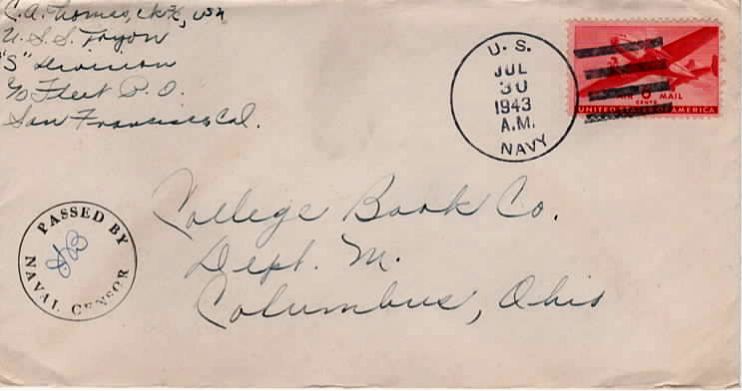 C.A. Thomas, USN
U.S.S. Tryon
"S" Division
c/o Fleet P.O.
San Francisco, Cal.
U. S.
JUL
30
1943
A.M.
NAVY
AIR 6 MAIL
CENTS
UNITED STATES OF AMERICA
PASSED BY
NAVAL CENSOR
College Book Co.
Dept. M.
Columbus, Ohio